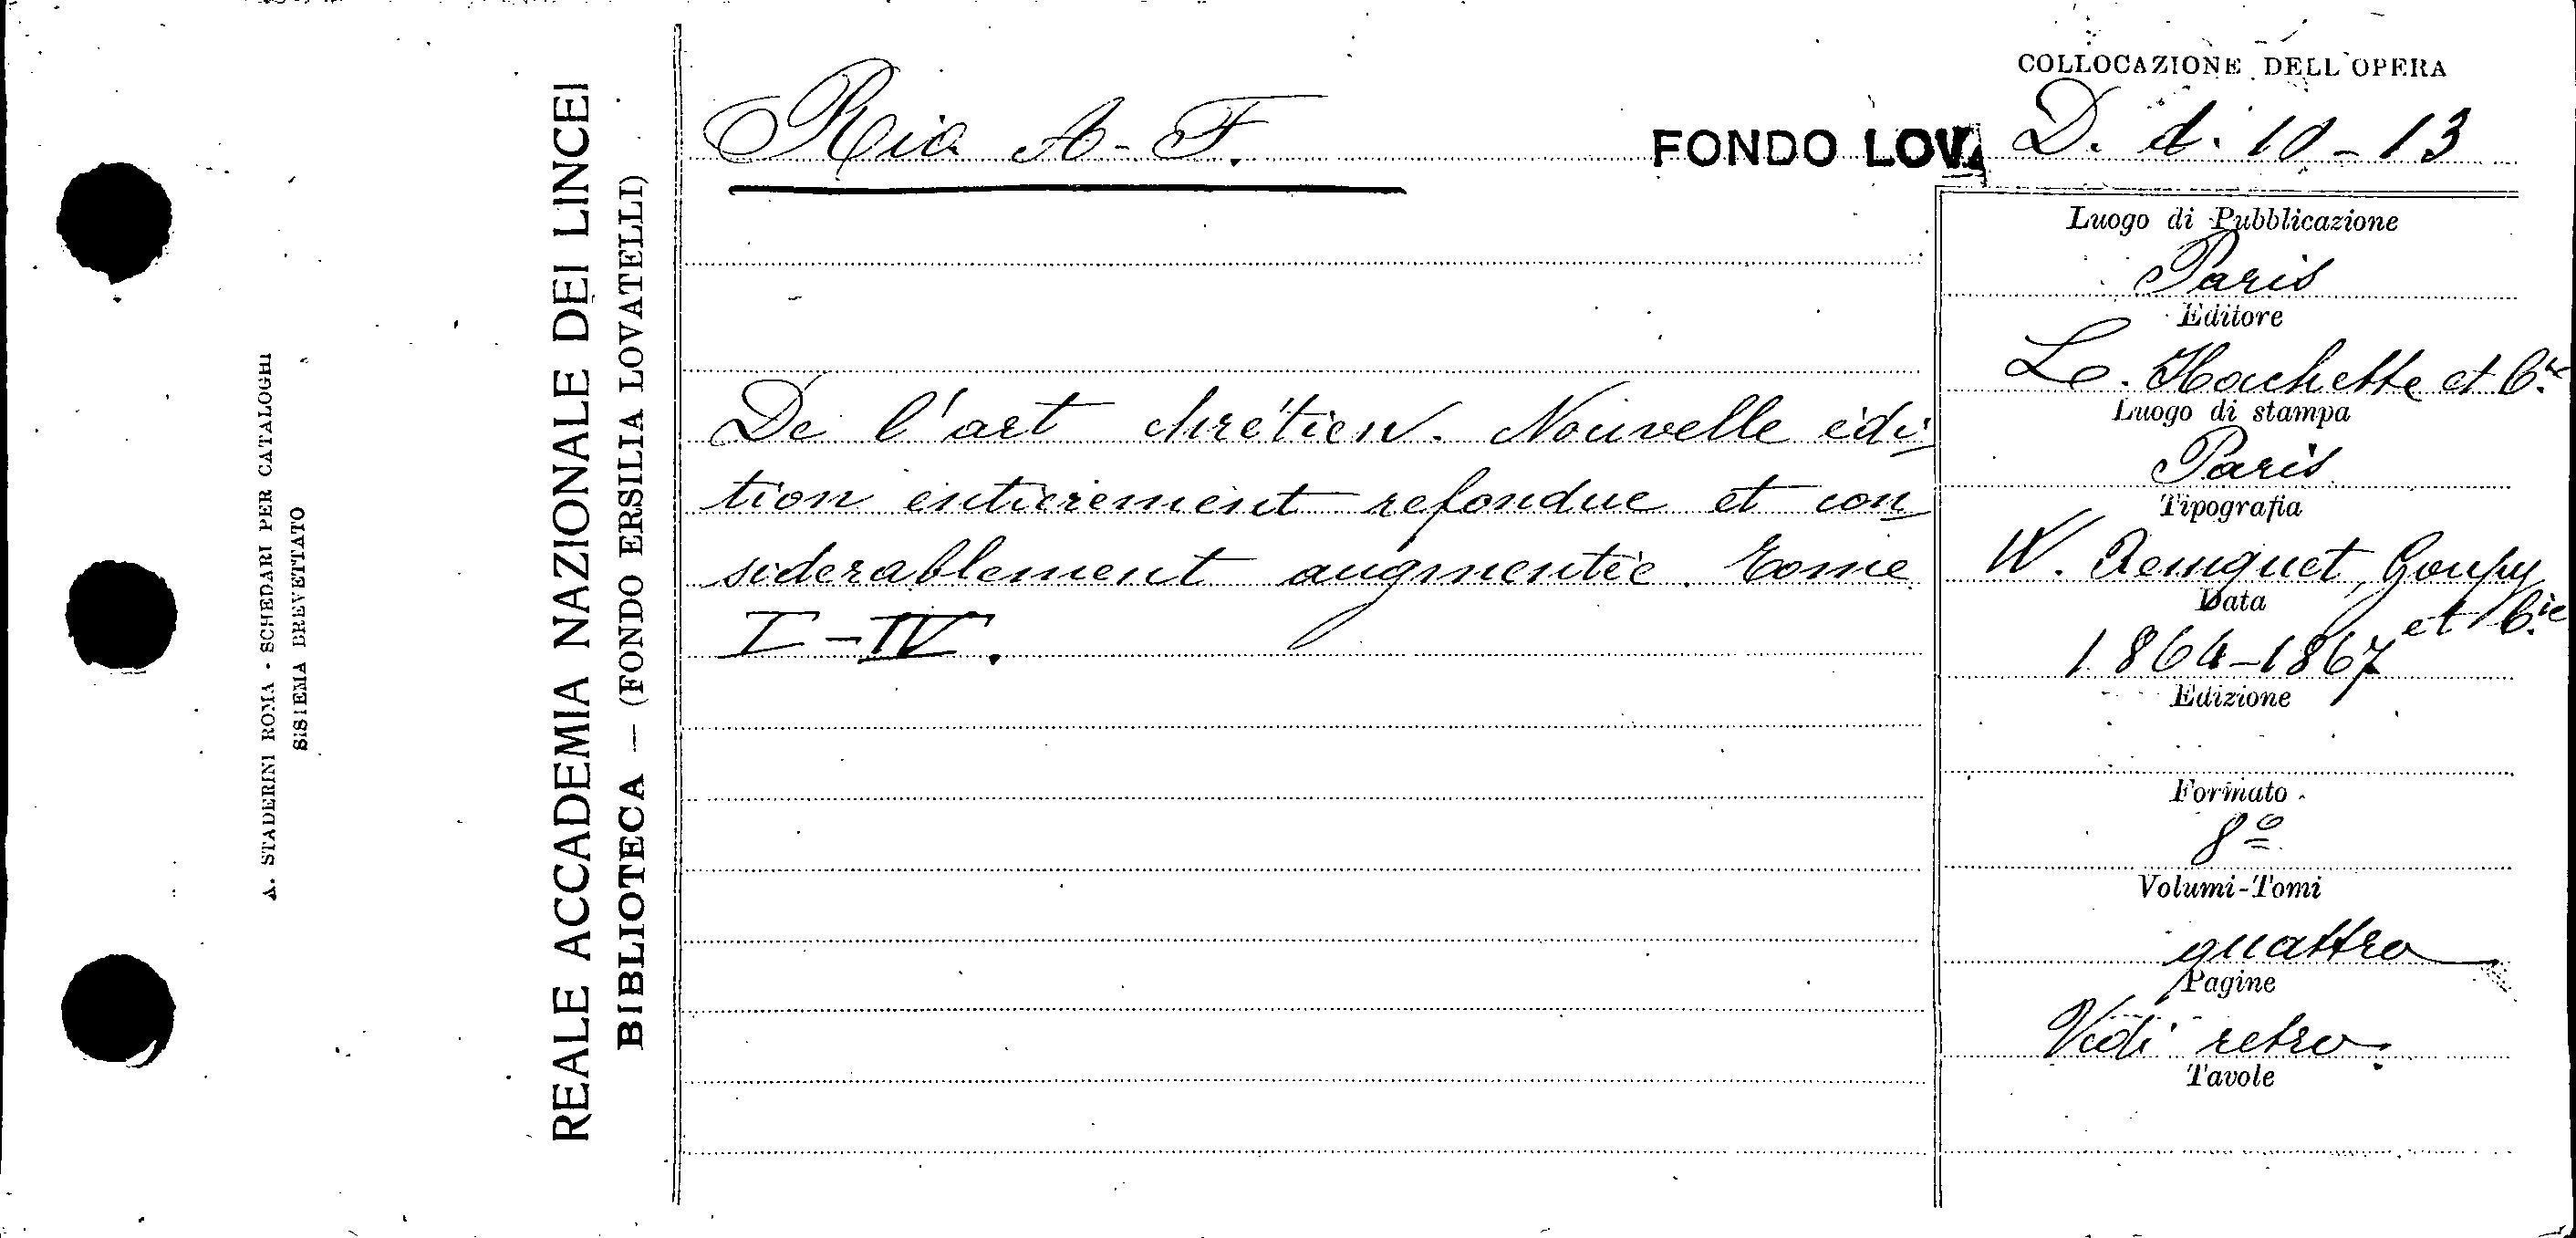 A. STADERINI ROMA - SCHEDARI PER CATALOGHI
SISTEMA BREVETTATO
REALE ACCADEMIA NAZIONALE DEI LINCEI
BIBLIOTECA — (FONDO ERSILIA LOVATELLI)
Rio A-F.
FONDO LOV.
COLLOCAZIONE DELL'OPERA
D. d. 10-13
De l'art chrétien. Nouvelle édi
tion entièrement refondue et con
siderablement augmentée. Tome
I-IV.
Luogo di Pubblicazione
Paris
Editore
L. Hachette et C.ie
Luogo di stampa
Paris
Tipografia
W. Remquet, Goupy
et C.ie
Data
1864-1867
Edizione
Formato
8º
Volumi-Tomi
quattro
Pagine
Vedi retro.
Tavole